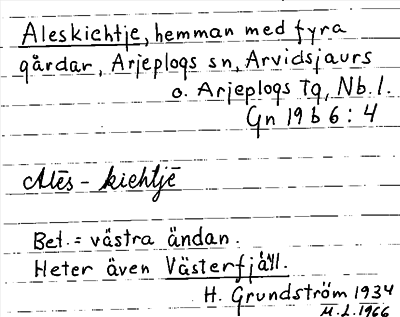 Aleskichtje, hemman med fyra
gårdar, Arjeplogs sn, Arvidsjaurs
o. Arjeplogs Tg, Nb. l.
Gn 19 b 6 : 4
Alēs - kichtjē
Bet. = västra ändan.
Heter även Västerfjäll.
H. Grundström 1934
M.L. 1966